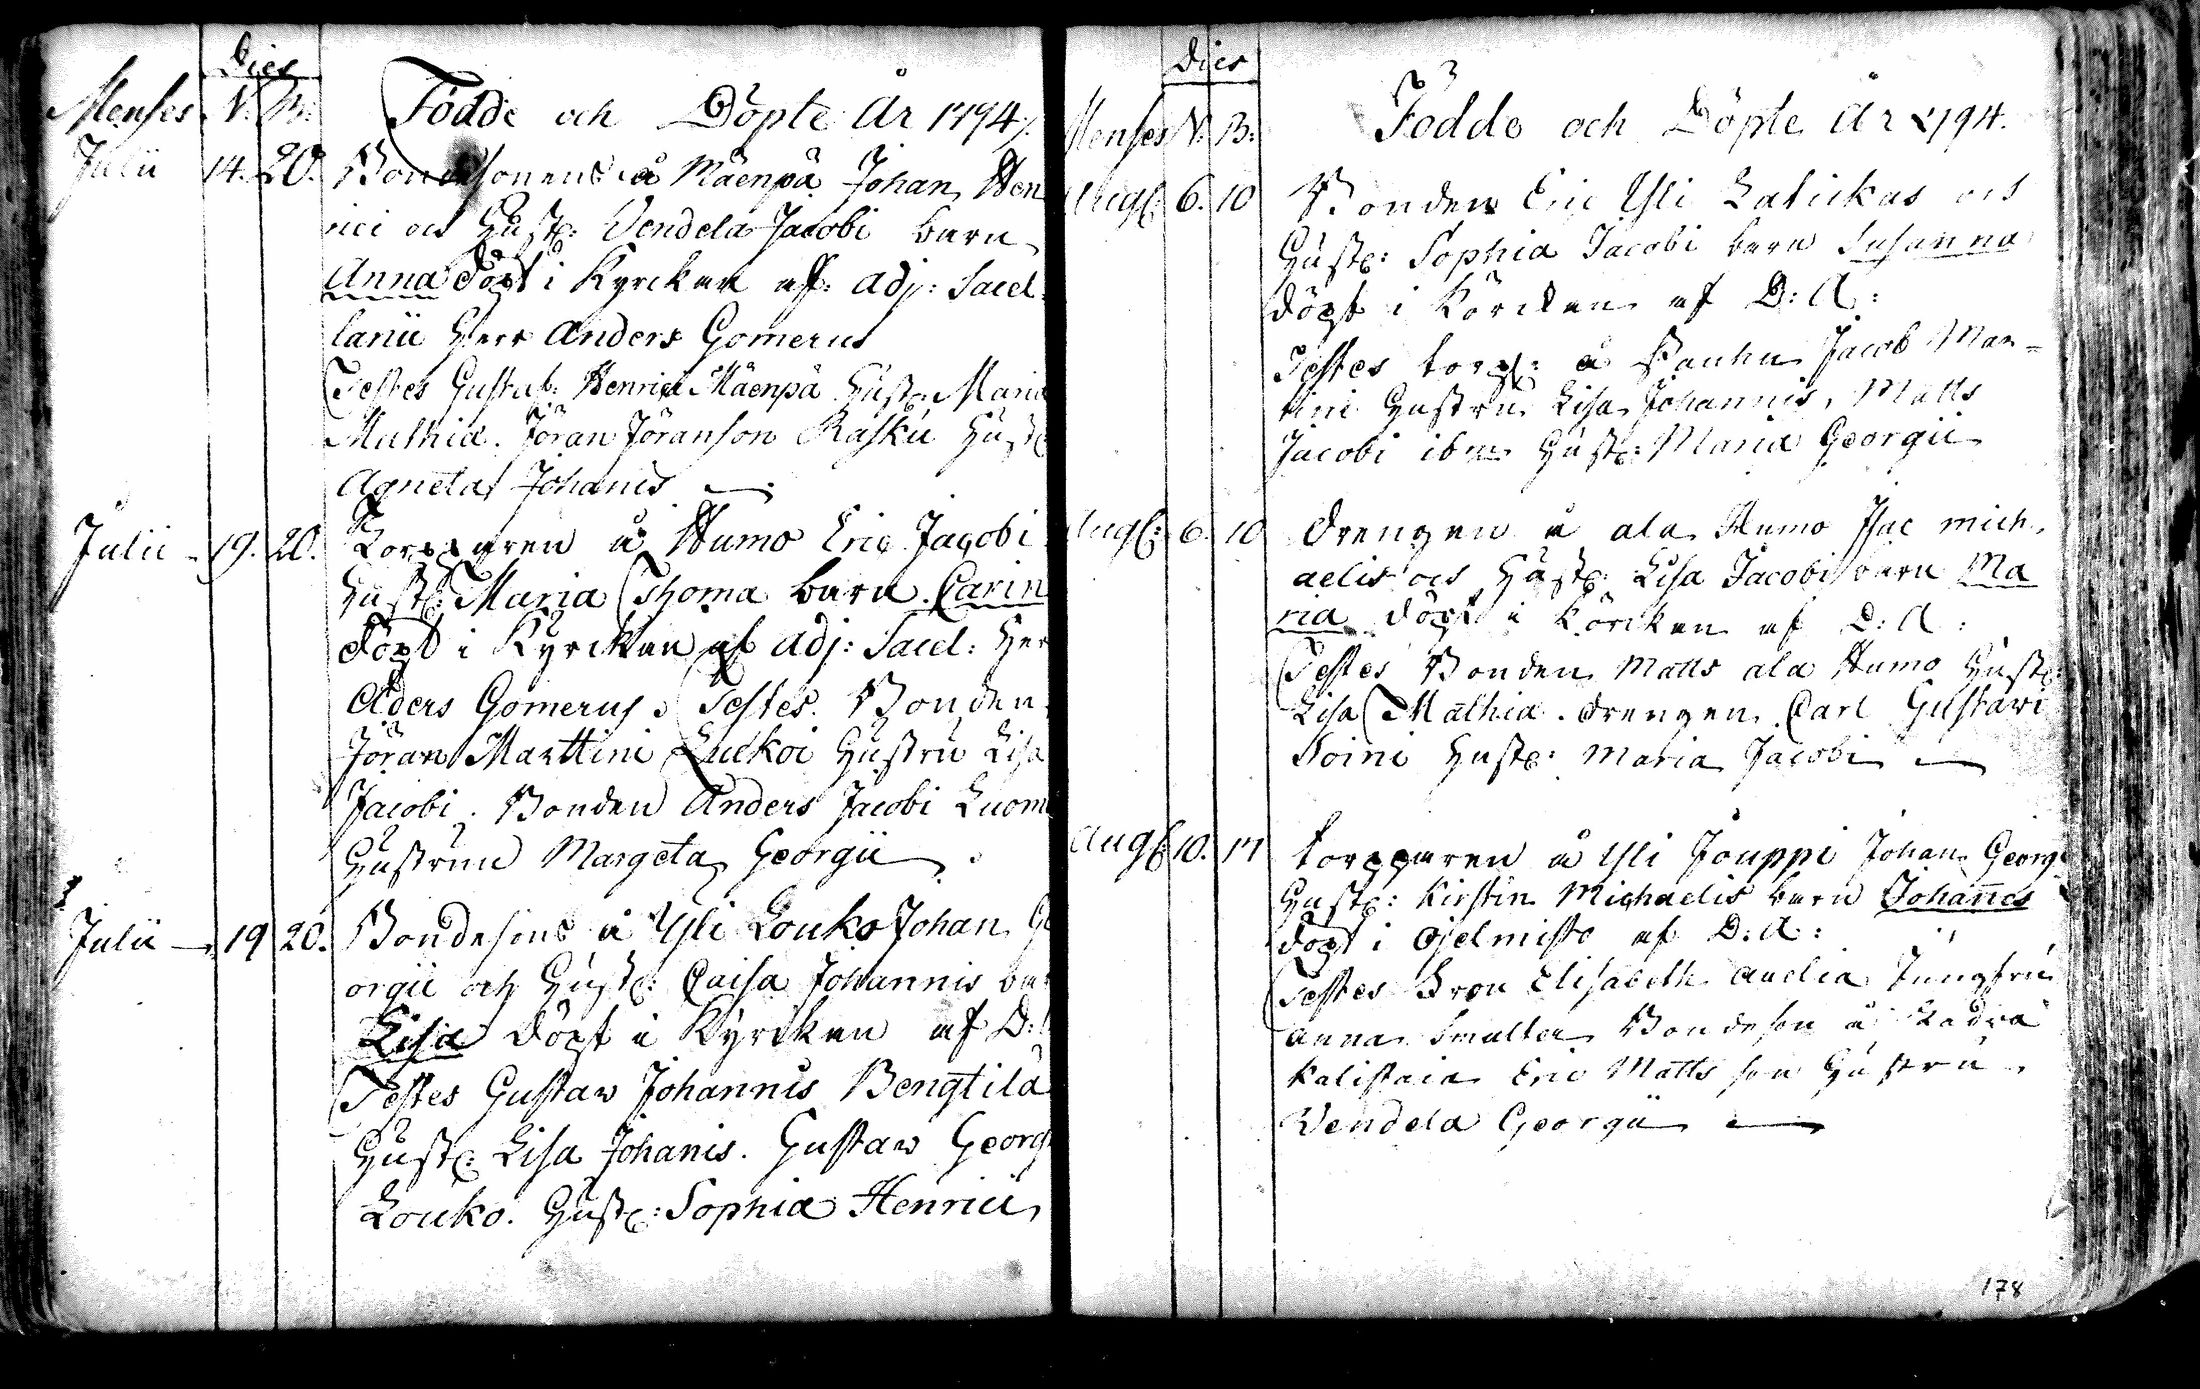 Dies
Menses N. B.
Födde och Döpte År 1794
Julii 14. 20. Bondesonens å Mäenpä Johan Hen
rici och Hustr: Vendela Jacobi barn
Anna döpt i Kyrckan af adj: Sacel
lanii Herr Anders Gomerus
Testes Gustaf Henrici Mäenpä Hust: Maria
Mathiæ. Jöran Jöranson Rasku Hustr
Agneta Johanis
Julii 19. 20. Torpparen å Humo Eric Jacobi
Hustr: Maria Thoma barn Carin
döpt i Kyrckan af adj: Sacel: Her
Aders Gomerus. Testes. Bonden
Jöran Marttini Luckoi Hustru Lisa
Jacobi. Bonden Anders Jacobi Luom
Hustrun Margeta Georgii
Julii 19 20. Bondesons å Yli Louko Johan Ge
orgii och Hustr: Caisa Johannis bar
Lisa döpt i Kyrckan af D:
Testes Gustav Johannis Bengtilä
Hustr: Lisa Johanis. Gustav Georgi
Louko. Hustr: Sophia Henrici
Dies
Menses N. B.
Födde och Döpte År 1794.
Augs: 6. 10 Bonden Eric Yli Latickas och
Hustr: Sophia Jacobi barn Susanna
döpt i Körckan af D: A:
Testes torp: å Pauhu Jacob Mar=
tini Hustru Lisa Johannis, Matts
Jacobi ibm Hustr: Maria Georgii
Augs: 6. 10 Drengen å ala Humo Isac mich
aelis och Hustr: Lisa Jacobi barn Ma
ria döpt i Körckan af D: A:
Testes Bonden Matts ala Humo Hustr:
Lisa Mathiæ. Drengen Carl Gustavi
Soini Hustr: Maria Jacobi
Augs: 10. 17 torpparen å Yli Jouppi Johan Georgi
Hustr: Kirstin Michaelis barn Johannes
döpt i Ojelmisto af D: A:
Testes Frou Elisabeth Auelia Jungfru
Anna Smalter Bondeson å
Kalistaia Eric Matts son Hustru
Vendela Georgii
178